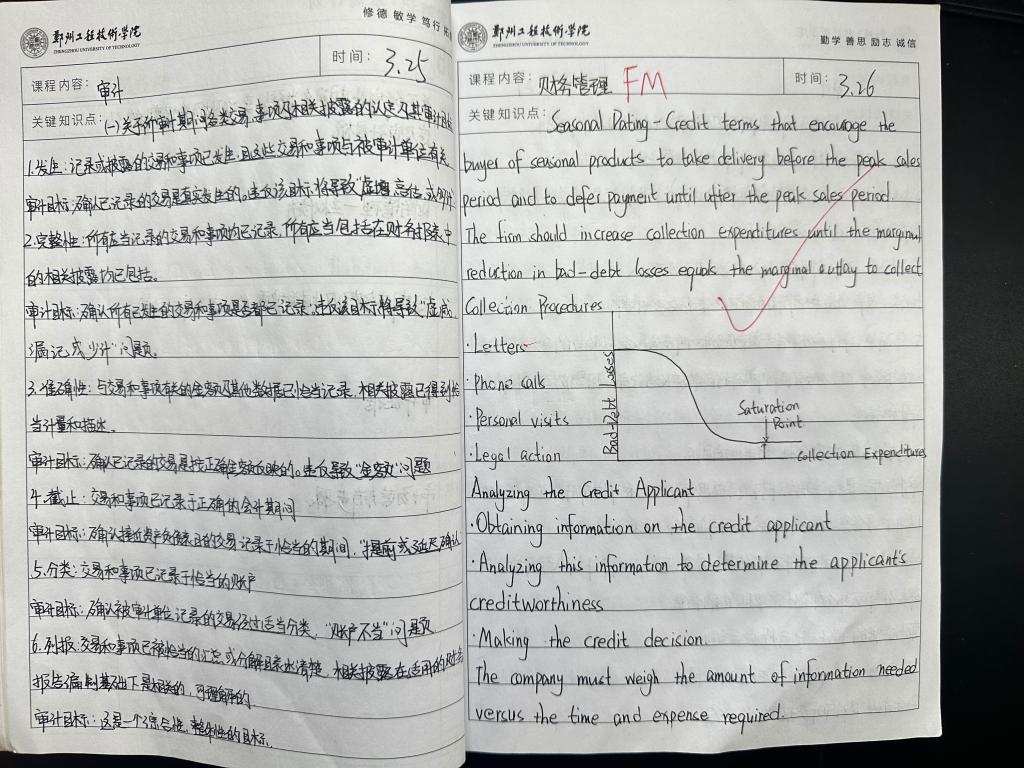 郑州工程技术学院
ZHENGZHOU UNIVERSITY OF TECHNOLOGY
修德 敏学 笃行
时间: 3.25
课程内容: 审计
关键知识点: (一)关于所审计期间各类交易、事项及相关披露的认定及其审计目标
1.发生:记录或披露的交易和事项已发生,且这些交易和事项与被审计单位有关
审计目标:确认已记录的交易是真实发生的。违反该目标将导致"虚增、高估、或多计"
2.完整性:所有应当记录的交易和事项均已记录,所有应当包括在财务报表中
的相关披露均已包括。
审计目标:确认所有已发生的交易和事项是否都已记录。违反该目标将导致"虚减、
漏记或少计"问题。
3.准确性:与交易和事项有关的金额及其他数据已恰当记录,相关披露已得到恰
当计量和描述。
审计目标:确认已记录的交易是按正确金额反映的。违反导致"金额"问题
4.截止:交易和事项已记录于正确的会计期间
审计目标:确认接近资产负债表日的交易记录于恰当的期间,"提前或延迟确认
5.分类:交易和事项已记录于恰当的账户
审计目标:确认被审计单位记录的交易经过适当分类,"账户不当"问题
6.列报:交易和事项已被恰当的汇总或分解且表述清楚,相关披露在适用的财务
报告编制基础下是相关的,可理解的.
审计目标:这是一个综合性,整体性的目标.
郑州工程技术学院
ZHENGZHOU UNIVERSITY OF TECHNOLOGY
勤学 善思 励志 诚信
课程内容: 财务管理 FM
时间: 3.26
关键知识点: Seasonal Dating-Credit terms that encourage the
buyer of seasonal products to take delivery before the peak sales
period and to defer payment until after the peak sales period.
The firm should increase collection expenditures until the marginal
reduction in bad-debt losses equals the marginal outlay to collect
Collection Procedures
·Letters
·Phone calls
·Personal visits
·Legal action
Bad-Debt Losses
Saturation
Point
Collection Expenditures
Analyzing the Credit Applicant
·Obtaining information on the credit applicant
·Analyzing this information to determine the applicant's
creditworthiness
·Making the credit decision.
The company must weigh the amount of information needed
versus the time and expense required.